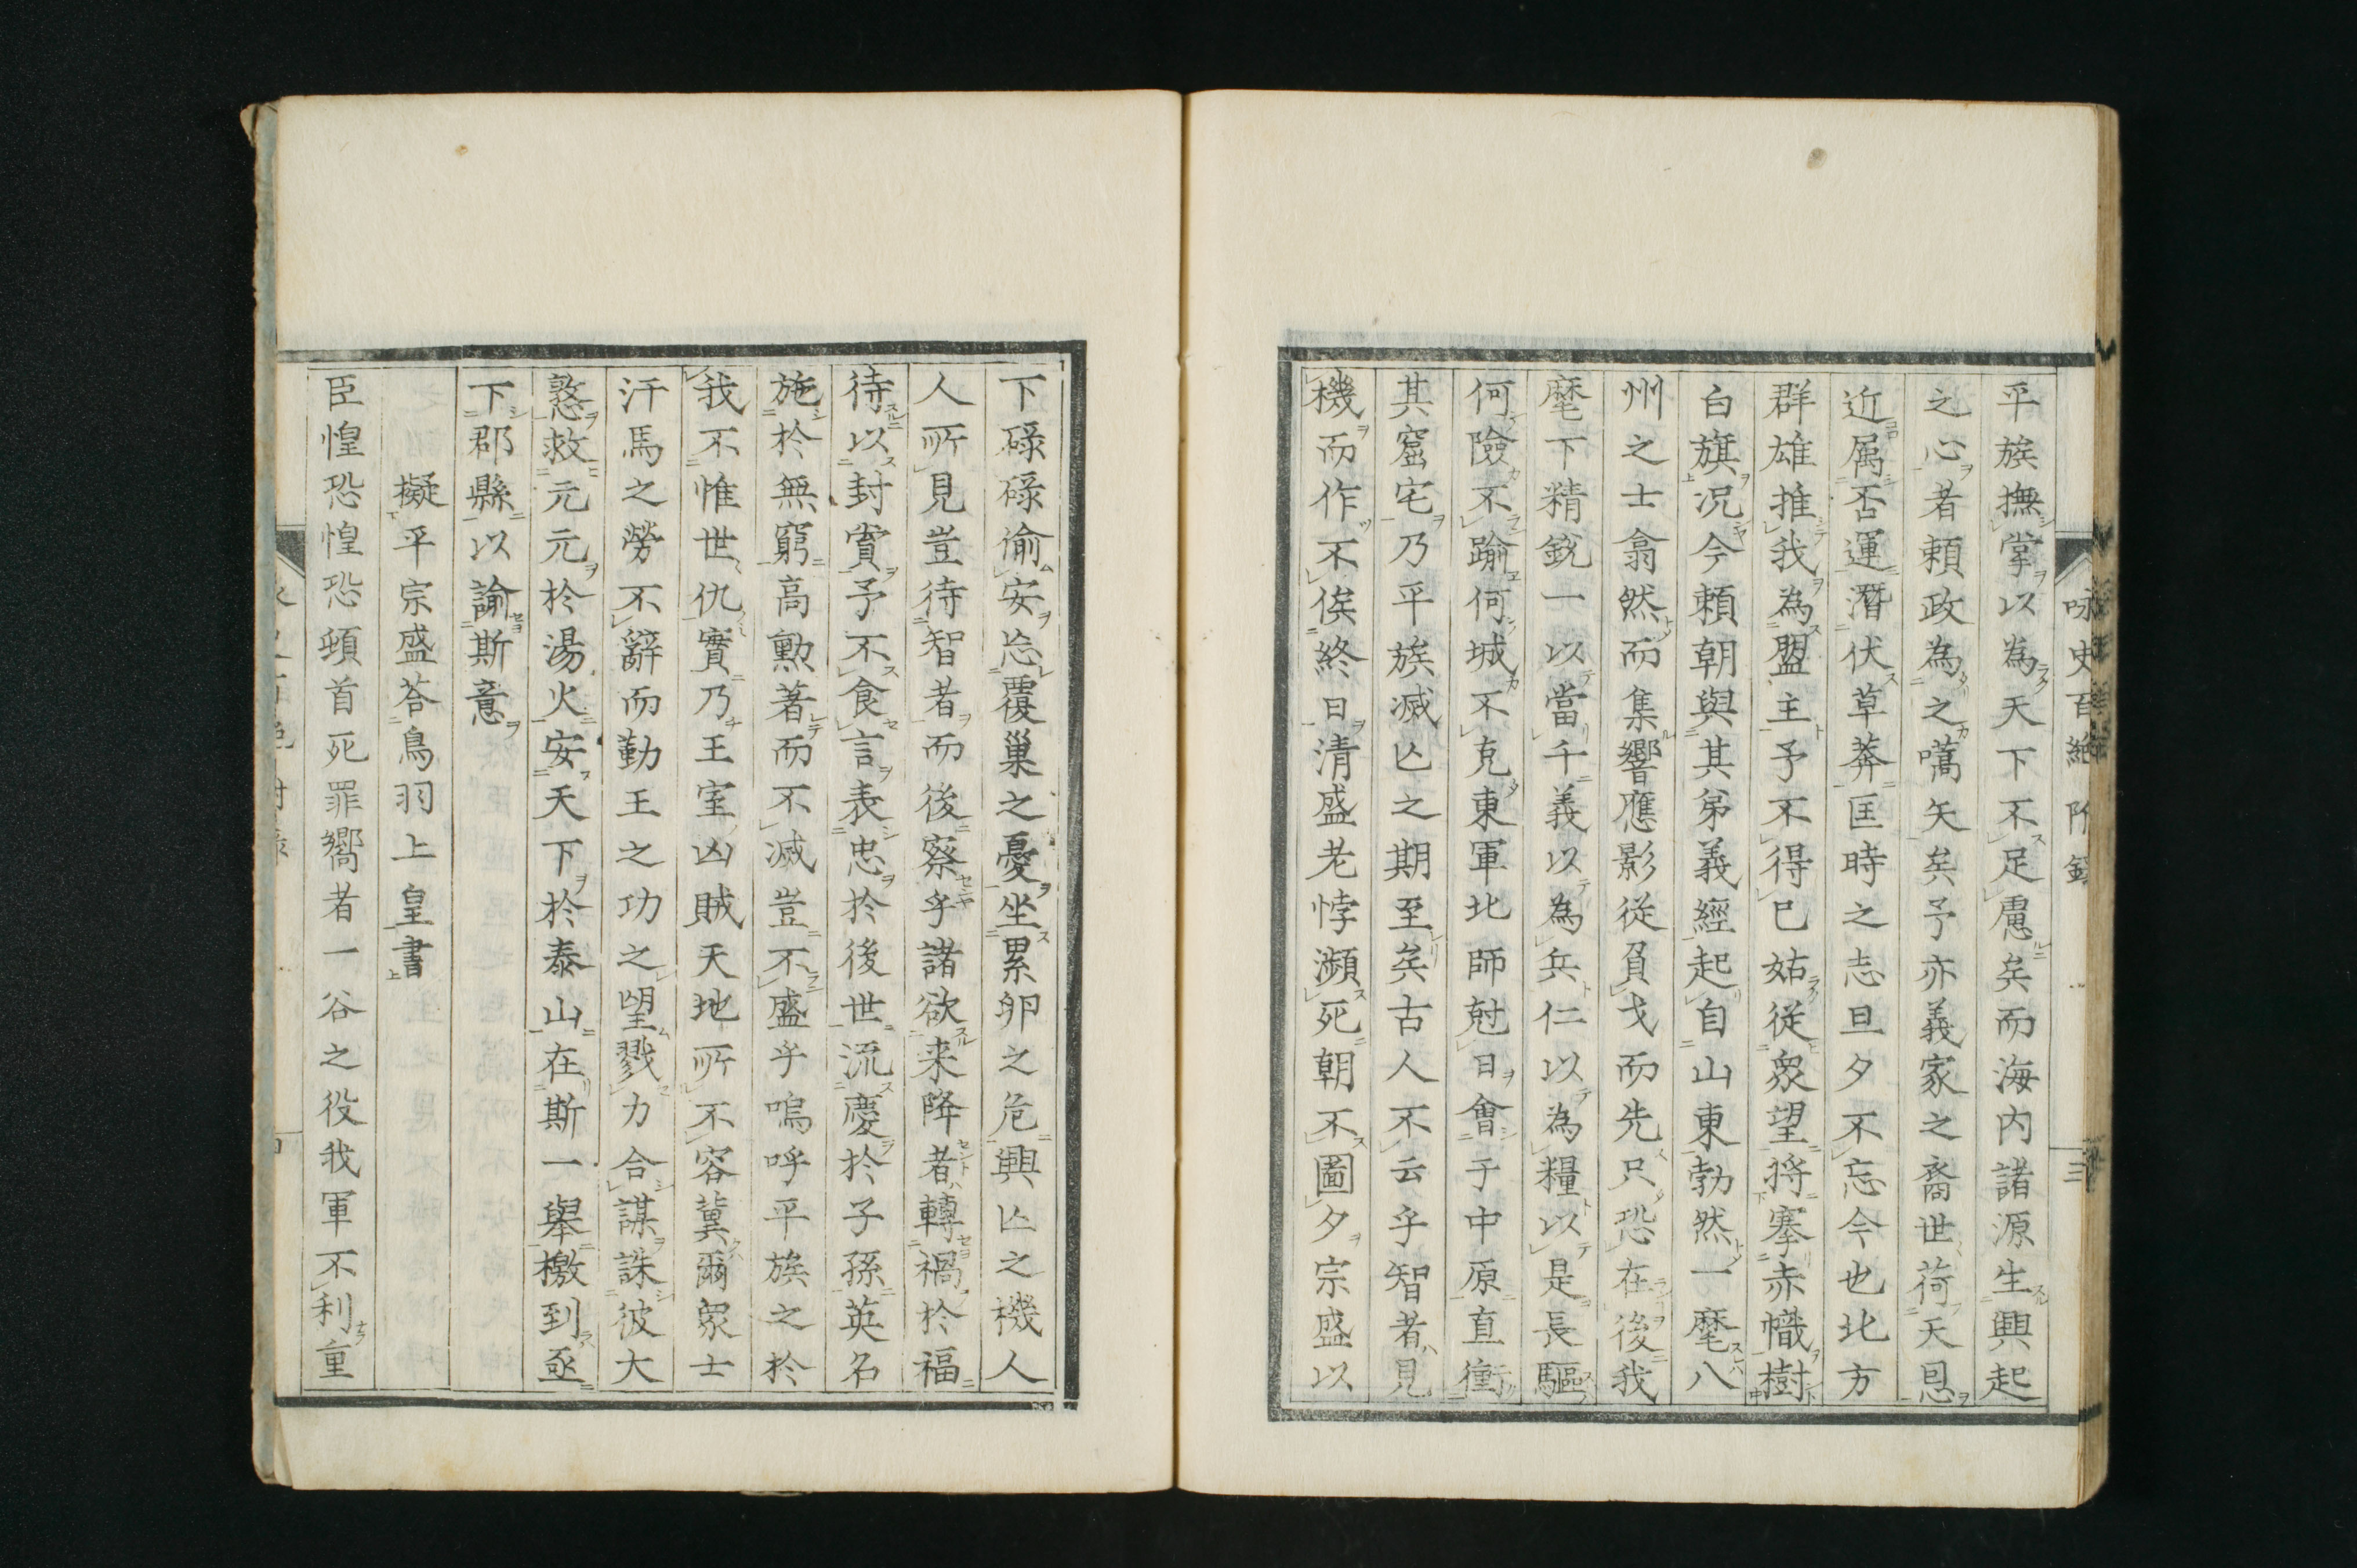 平族撫掌以為天下不足慮矣而海内諸源生興起
之心者頼政為之嚆矢矣予亦義家之裔世荷天恩
近属否運潛伏草莽匡時之志旦夕不忘今也北方
群雄推我為盟主予不得已姑從衆望将搴赤幟樹
白旗况今頼朝與其弟義經起自山東勃然一麾八
州之士翕然而集響應影従負戈而先只恐在後我
麾下精鋭一以當千義以為兵仁以為糧以是長驅
何險不踰何城不克東軍北師尅日會于中原直衝
其窟宅乃平族滅亡之期至矣古人不云乎智者見
機而作不俟終日清盛老悖瀕死朝不圖夕宗盛以
下碌碌偷安忘覆巢之憂坐累卵之危興亡之機人
人所見豈待智者而後察乎諸欲来降者轉禍於福
待以封賞予不食言表忠於後世流慶於子孫英名
施於無窮高勲著而不滅豈不盛乎嗚呼平族之於
我不惟世仇實乃王室凶賊天地所不容冀爾衆士
汗馬之勞不辭而勤王之功之望戮力合謀誅彼大
憝救元元於湯火安天下於泰山在斯一舉檄到亟
下郡縣以諭斯意
擬平宗盛荅鳥羽上皇書
臣惶恐惶恐頓首死罪嚮者一谷之役我軍不利重
咏史百絶 附録
三